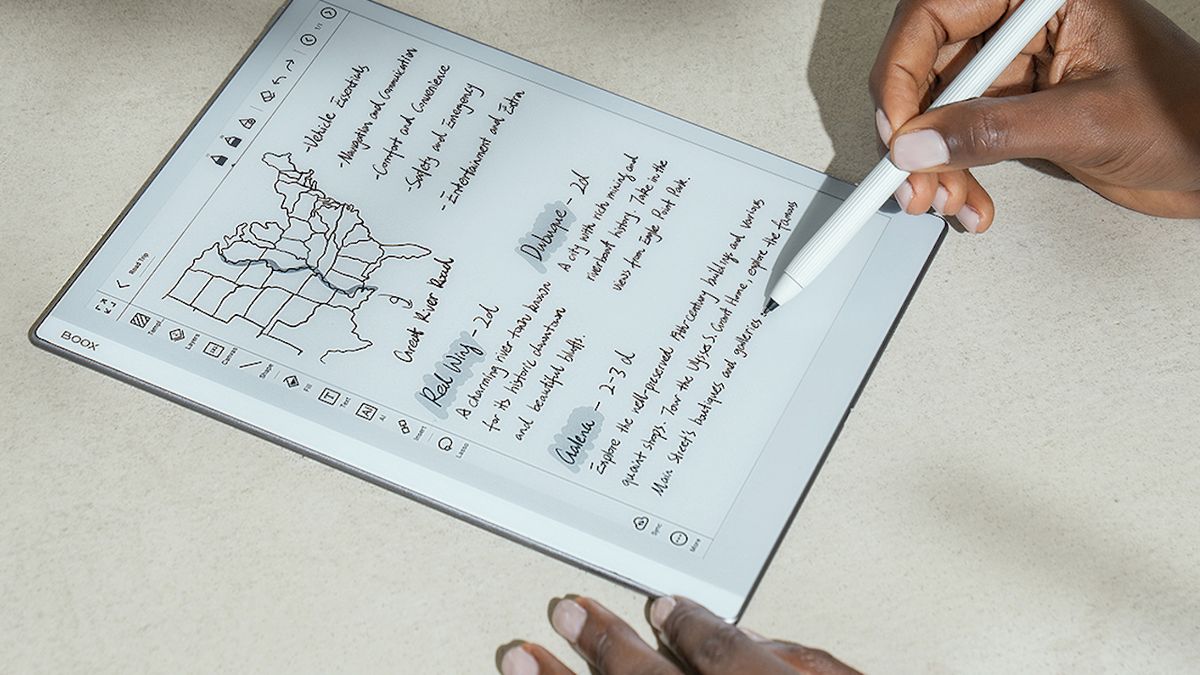 BOOX
Road Trip
1/1
Templ.
Layers
Canvas
Shape
Fill
Text
AI
Insert
Lasso
Sync
More
-Vehicle Essentials
-Navigation and Communication
-Comfort and Convenience
-Safety and Emergency
-Entertainment and Extra
Great River Road
Red Wing - 2d
A charming river town known
for its historic downtown
and beautiful bluffs.
Dubuque - 2d
A city with rich mining and
riverboat history. Take in the
views from Eagle Point Park.
Galena - 2-3 d
- Explore the well-preserved 19th-century buildings and various
quaint shops. Tour the Ulysses S. Grant Home, explore the famous
Main Street's boutiques and galleries